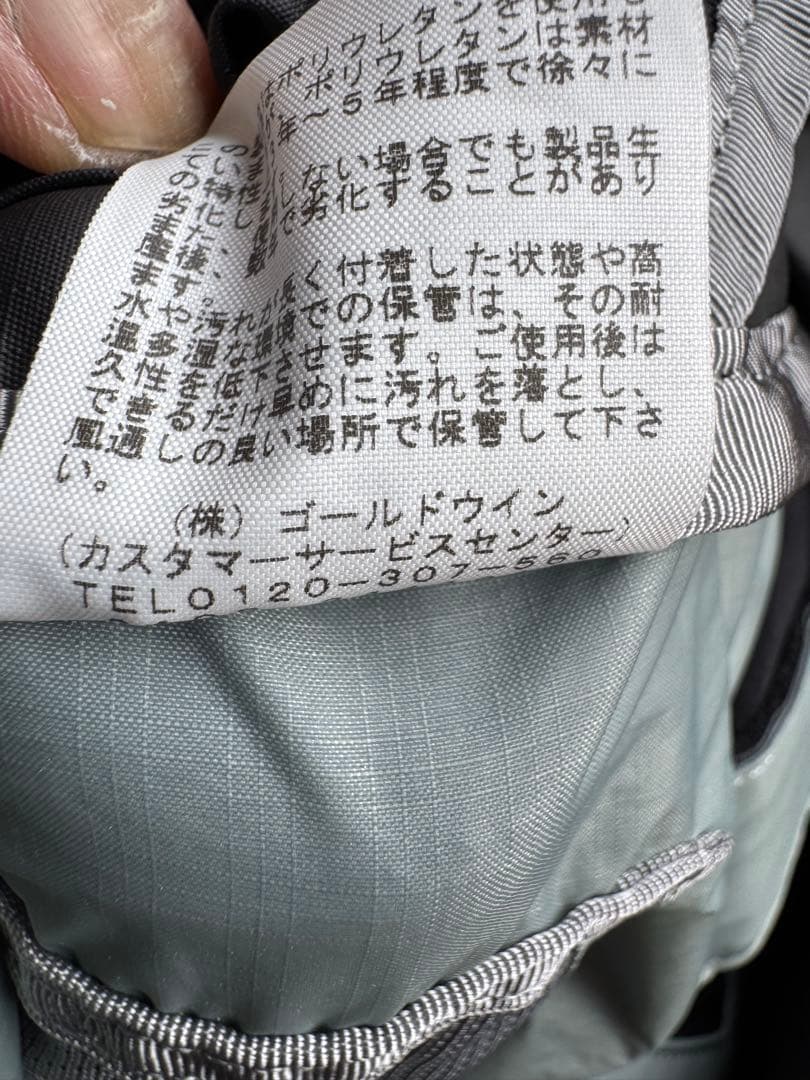 レタンを使用
ポリウレタンは
年〜5年程度で徐々に
ない場合でも製品生
劣化することがあり
ます。
水や汚れが多く付着した状態や高
温多湿な環境での保管は、その耐
久性を低下させます。ご使用後は、
できるだけ早めに汚れを落とし、
風通しの良い場所で保管して下さ
い。
(株)ゴールドウイン
(カスタマーサービスセンター)
TEL0120-307-560